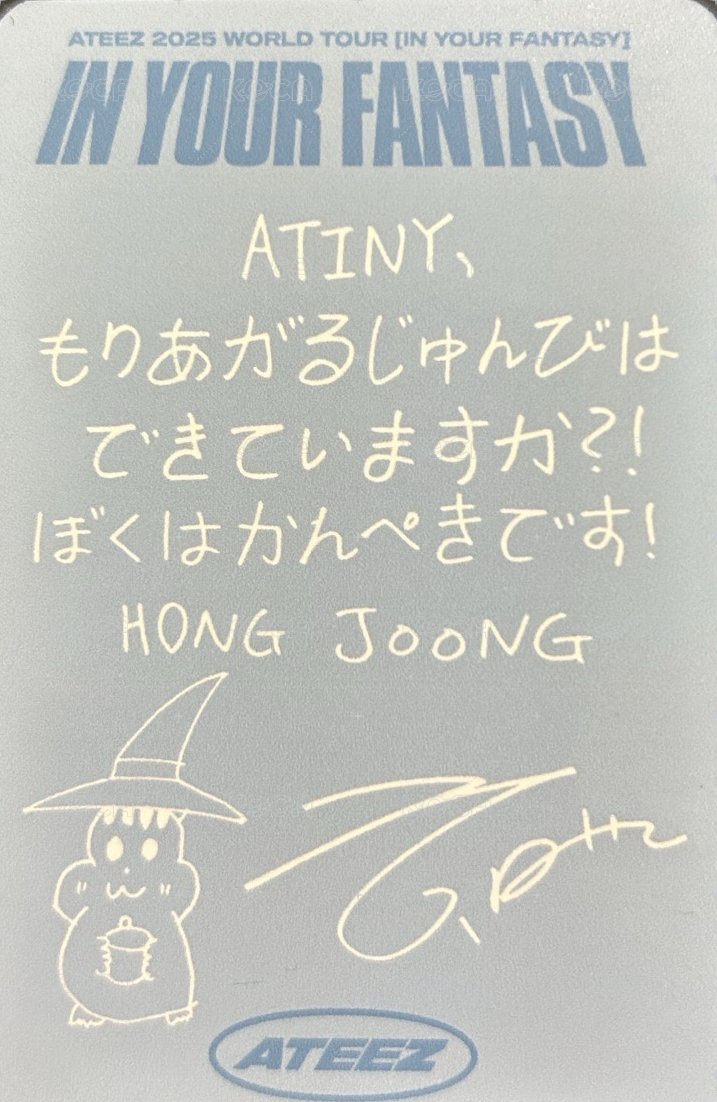 ATEEZ 2025 WORLD TOUR [IN YOUR FANTASY]
IN YOUR FANTASY
ATINY、
もりあがるじゅんびは
できていますか?!
ぼくはかんぺきです!
HONG JOONG
ATEEZ